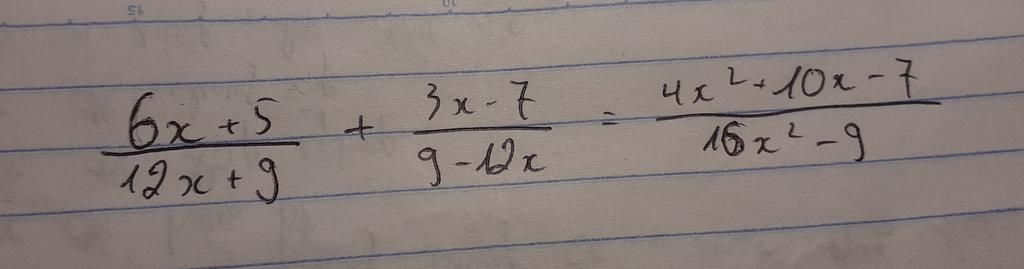 15 10
\frac{6x+5}{12x+9} + \frac{3x-7}{9-12x} = \frac{4x^2+10x-7}{16x^2-9}